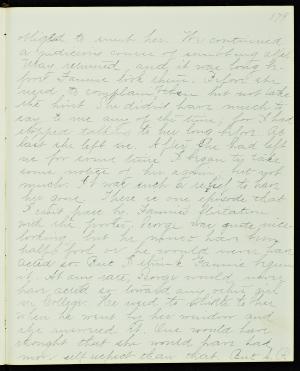 179
to her. We continued
a judicious course of snubbing after
May returned, and it was long be-
fore Fannie took them. Before she
used to complain often but not take
the hint. She didn't have much to
say to me any of the time, for I had
stopped talking to her long before. At
last she left us. After she had left
us for some time I began to take
some notice of her again, but not
much. It was such a relief to have
her gone. There is one episode that
I can't pass by, Fannie's flirtation
with the porter. George was quite nice
looking, but he
have
acted so. But I think Fannie began
it. At any rate, George would never
have acted so toward any other girl
in College. He used to whistle to her
when he went by her window and
she answered it. One would have
thought that she would have had
more self respect than that. But